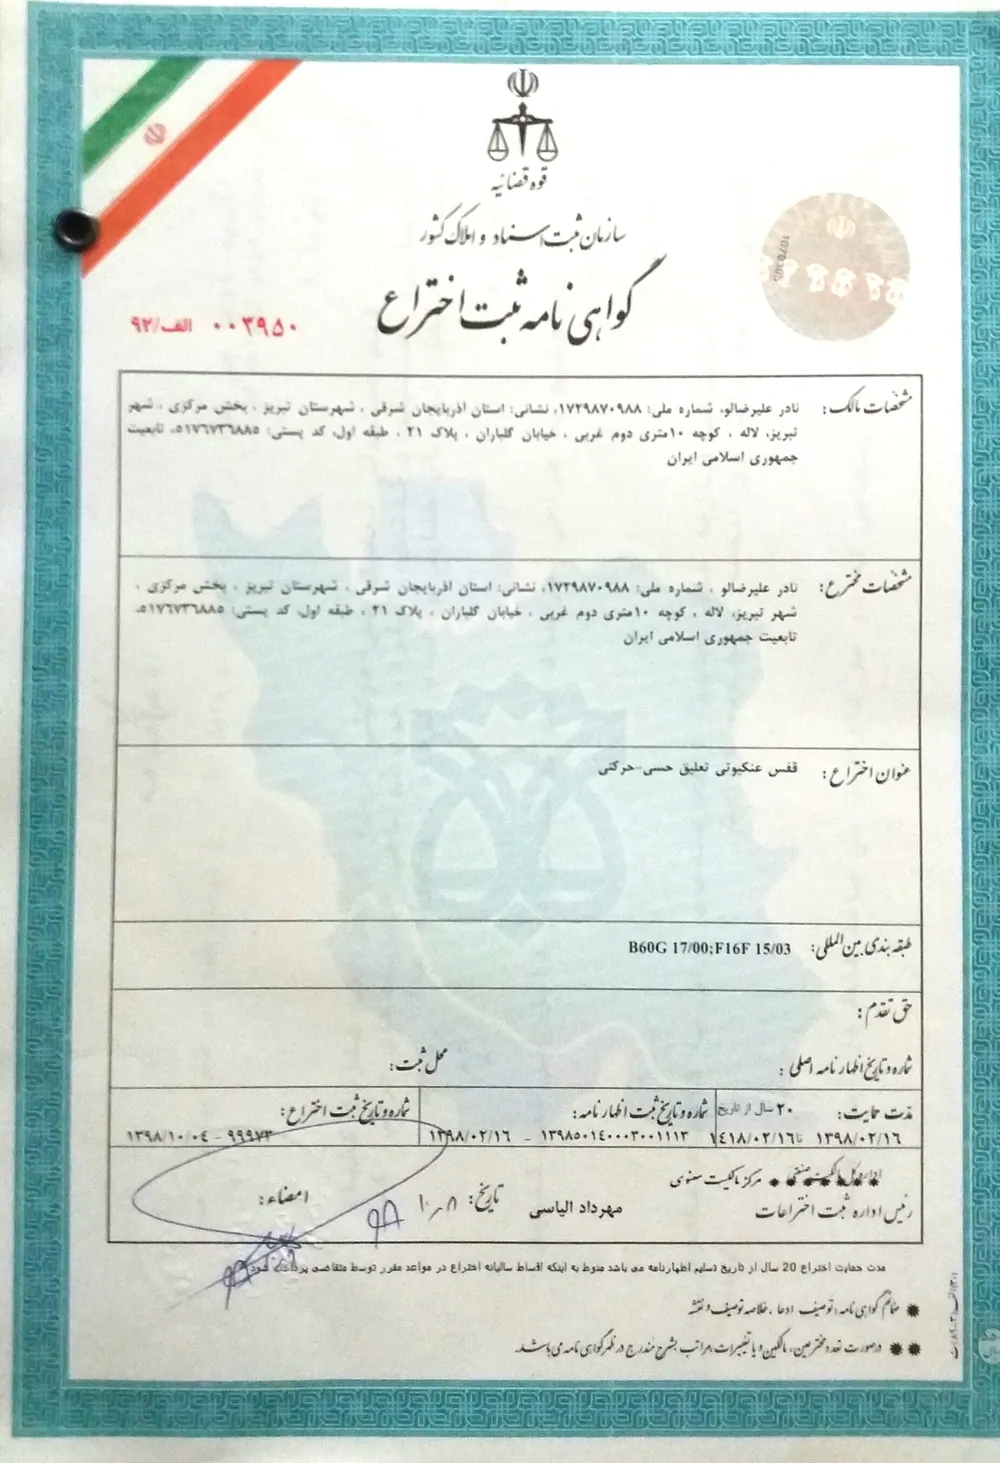 قوه قضائیه
سازمان ثبت اسناد و املاک کشور
گواهی نامه ثبت اختراع
الف/۹۲ ۰۰۳۹۵۰
مشخصات مالک: نادر علیرضالو، شماره ملی: ۱۷۲۹۸۷۰۹۸۸، نشانی: استان آذربایجان شرقی ، شهرستان تبریز ، بخش مرکزی ، شهر
تبریز، لاله ، کوچه ۱۰متری دوم غربی ، خیابان گلباران ، پلاک ۲۱ ، طبقه اول، کد پستی: ۵۱۷۶۷۳۶۸۸۵، تابعیت
جمهوری اسلامی ایران
مشخصات مخترع: نادر علیرضالو ، شماره ملی: ۱۷۲۹۸۷۰۹۸۸، نشانی: استان آذربایجان شرقی ، شهرستان تبریز ، بخش مرکزی ،
شهر تبریز، لاله ، کوچه ۱۰متری دوم غربی ، خیابان گلباران ، پلاک ۲۱ ، طبقه اول، کد پستی: ۵۱۷۶۷۳۶۸۸۵،
تابعیت جمهوری اسلامی ایران
عنوان اختراع: قفس عنکبوتی تعلیق حسی-حرکتی
طبقه بندی بین المللی: B60G 17/00;F16F 15/03
حق تقدم:
شماره و تاریخ اظهارنامه اصلی: محل ثبت:
مدت حمایت: ۲۰ سال از تاریخ شماره و تاریخ ثبت اظهارنامه: شماره و تاریخ ثبت اختراع:
۱۳۹۸/۰۲/۱۶ تا ۱۴۱۸/۰۲/۱۶ ۱۳۹۸۵۰۱۴۰۰۰۳۰۰۱۱۱۳ - ۱۳۹۸/۰۲/۱۶ ۹۹۹۷۳ - ۱۳۹۸/۱۰/۰۴
اداره کل مالکیت صنعتی مرکز مالکیت معنوی
رئیس اداره ثبت اختراعات مهرداد الیاسی تاریخ: امضاء:
مدت حمایت اختراع 20 سال از تاریخ تسلیم اظهارنامه می باشد منوط به اینکه اقساط سالیانه اختراع در مواعد مقرر توسط متقاضی پرداخت شود
✹ ضمائم گواهی نامه: توصیف، ادعا، خلاصه توصیف و نقشه
✹✹ در صورت تعدد مخترعین، مالکین و یا تغییرات مراتب بشرح مندرج در ظهر گواهی نامه می باشد.